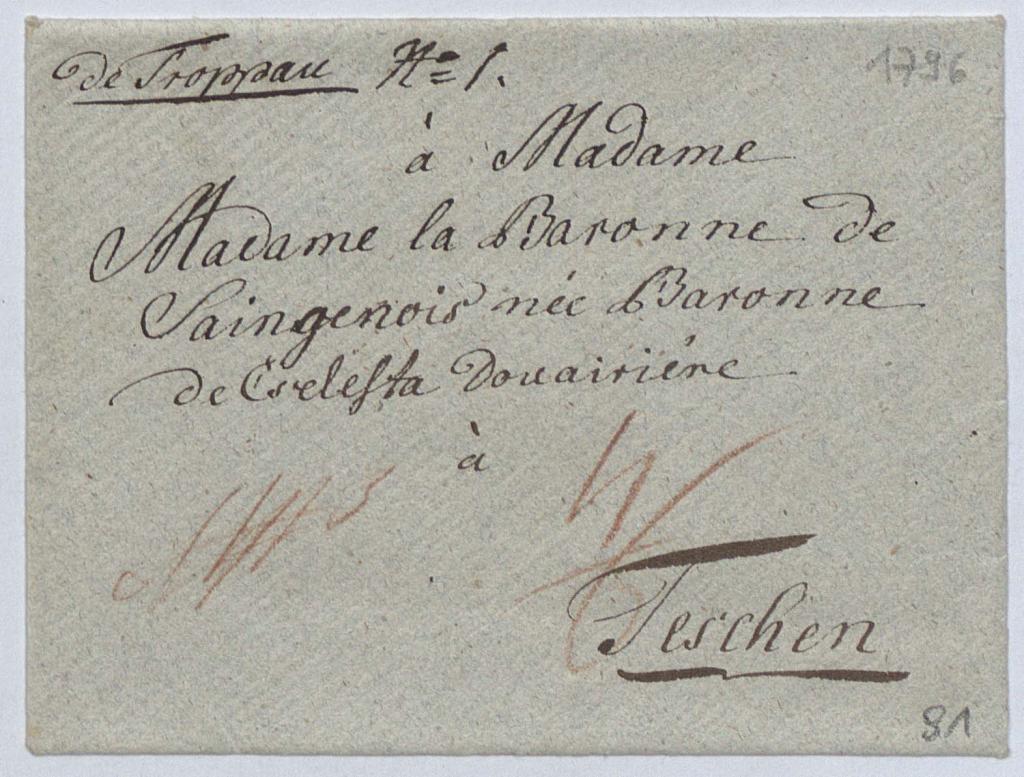 de Troppau No= 1.
1796
à Madame
Madame la Baronne de
Saingenois née Baronne
de Cselesta Douairiére
à
Teschen
81